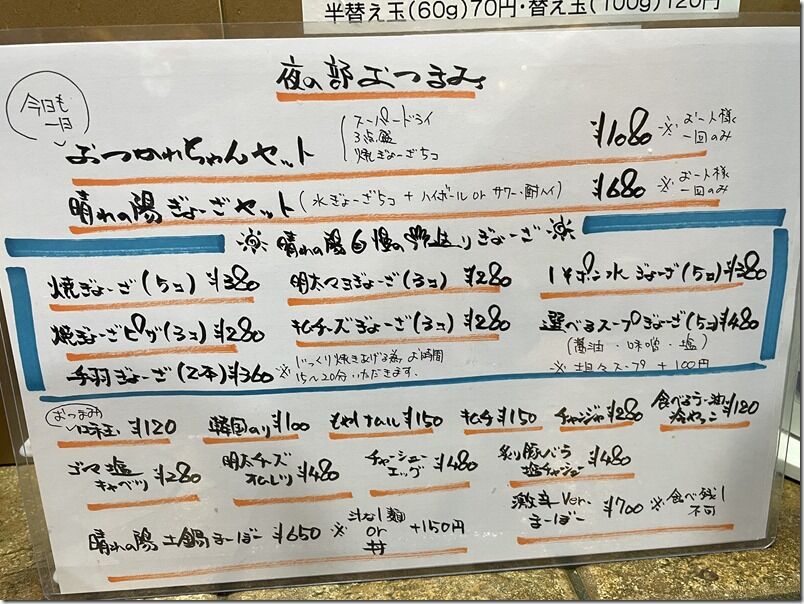 半替え玉(60g)70円・替え玉(100g)120円
夜の部おつまみ
今日も
一日
おつかれちゃんセット
スーパードライ
3点盛
焼ぎょーざ5コ
¥1080
※お一人様
一回のみ
晴れの陽ぎょーざセット(水ぎょーざ5コ + ハイボール or サワー・酎ハイ)
¥680
※お一人様
一回のみ
晴れの陽自慢の野送りぎょーざ
焼ぎょーざ(5コ) ¥380
明太マヨぎょーざ(3コ) ¥280
1ポン水ぎょーざ(5コ) ¥380
焼ぎょーざピザ(3コ) ¥280
キムチーズぎょーざ(3コ) ¥280
選べるスープぎょーざ(5コ) ¥480
(醤油・味噌・塩)
※坦々スープ +100円
手羽ぎょーざ(2本) ¥360
※じっくり焼きあげる為、お時間
15〜20分いただきます。
おつまみ
味玉 ¥120
韓国のり ¥100
もやしナムル ¥150
キムチ ¥150
チャンジャ ¥280
食べるラー油
冷やっこ ¥120
ゴマ塩
キャベツ ¥280
明太チーズ
オムレツ ¥480
チャーシュー
エッグ ¥480
炙り豚バラ
塩チャーシュー ¥480
晴れの陽 土鍋まーぼー ¥650
※汁なし麺
or
丼
+150円
激辛Ver.
まーぼー ¥700
※食べ残し
不可